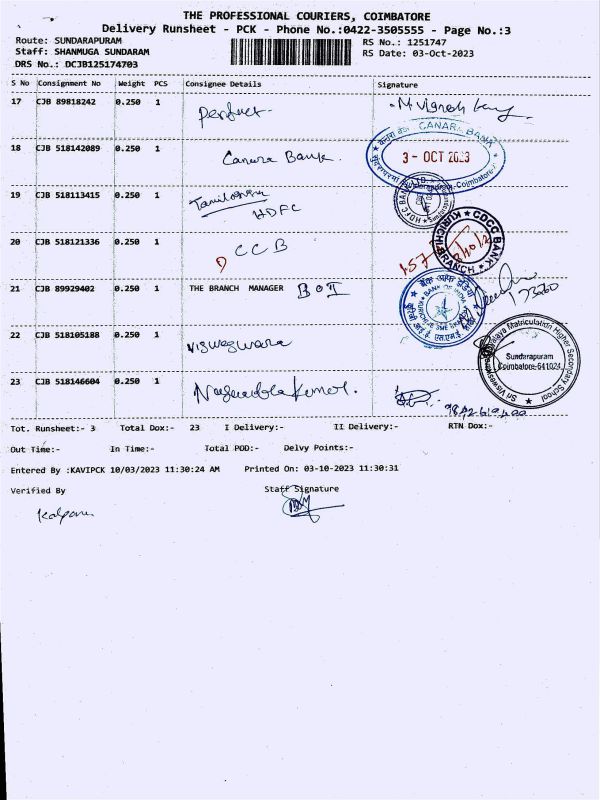 THE PROFESSIONAL COURIERS, COIMBATORE
Delivery Runsheet - PCK - Phone No.:0422-3505555 - Page No.:3
Route: SUNDARAPURAM
RS No.: 1251747
Staff: SHANMUGA SUNDARAM
RS Date: 03-Oct-2023
DRS No.: DCJB125174703
S No Consignment No Weight PCS Consignee Details Signature
17 CJB 89818242 0.250 1 Perfect
M Vignesh
18 CJB 518142089 0.250 1 Canara Bank.
CANARA BANK
3 - OCT 2023
19 CJB 518113415 0.250 1
HDFC
20 CJB 518121336 0.250 1 DCCB
CDCC BANK
KURICHI BRANCH
21 CJB 89929402 0.250 1 THE BRANCH MANAGER BOI
बैंक ऑफ इंडिया
BANK OF INDIA
22 CJB 518105188 0.250 1 Visweswara
Matriculation Higher Secondary School
Sundarapuram
Coimbatore-641024
23 CJB 518146604 0.250 1
Tot. Runsheet:- 3 Total Dox:- 23 I Delivery:- II Delivery:- RTN Dox:-
Out Time:- In Time:- Total POD:- Delvy Points:-
Entered By :KAVIPCK 10/03/2023 11:30:24 AM Printed On: 03-10-2023 11:30:31
Verified By Staff Signature
Kalpana